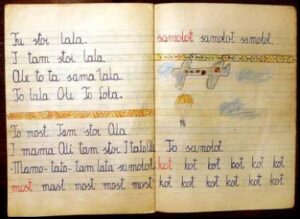 Tu stoi lala.
I tam stoi lala.
Ale to ta sama lala.
To lala Ali. To Lola.
To most. Tam stoi Ala.
I mama Ali tam stoi. I tata
-Mamo-tato-tam lata samolot.
most most most most most
samolot samolot samolot.
To samolot
kot kot kot kot kot kot
kot kot kot kot kot kot